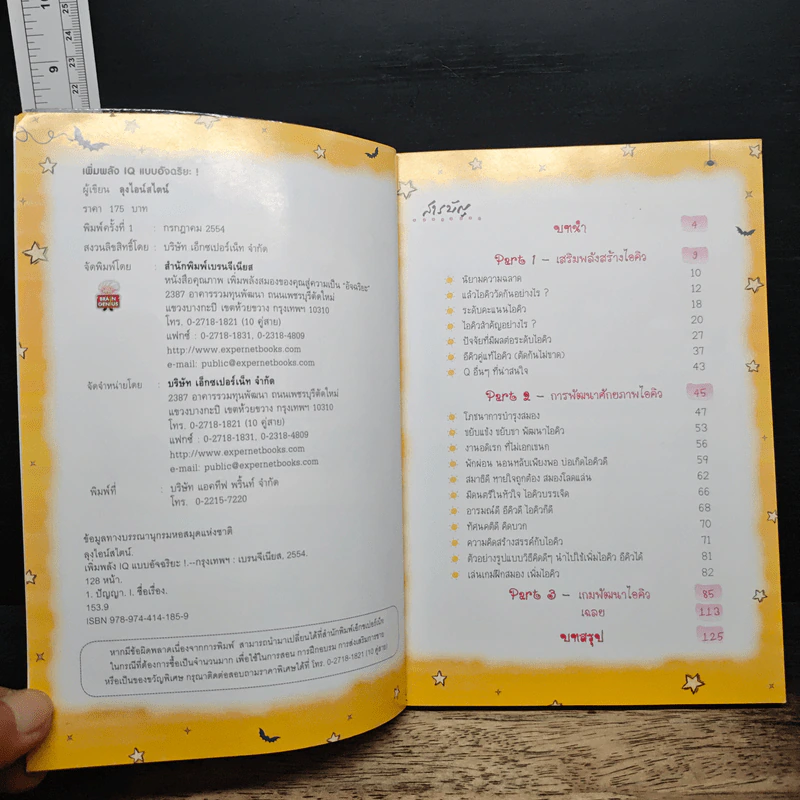 เพิ่มพลัง IQ แบบอัจฉริยะ !
ผู้เขียน ลุงไอน์สไตน์
ราคา 175 บาท
พิมพ์ครั้งที่ 1 : กรกฎาคม 2554
สงวนลิขสิทธิ์โดย : บริษัท เอ็กซเปอร์เน็ท จำกัด
จัดพิมพ์โดย : สำนักพิมพ์เบรนจีเนียส
หนังสือคุณภาพ เพิ่มพลังสมองของคุณสู่ความเป็น "อัจฉริยะ"
2387 อาคารรวมทุนพัฒนา ถนนเพชรบุรีตัดใหม่
แขวงบางกะปิ เขตห้วยขวาง กรุงเทพฯ 10310
โทร. 0-2718-1821 (10 คู่สาย)
แฟกซ์ : 0-2718-1831, 0-2318-4809
http://www.expernetbooks.com
e-mail: public@expernetbooks.com
BRAIN GENIUS
จัดจำหน่ายโดย : บริษัท เอ็กซเปอร์เน็ท จำกัด
2387 อาคารรวมทุนพัฒนา ถนนเพชรบุรีตัดใหม่
แขวงบางกะปิ เขตห้วยขวาง กรุงเทพฯ 10310
โทร. 0-2718-1821 (10 คู่สาย)
แฟกซ์ : 0-2718-1831, 0-2318-4809
http://www.expernetbooks.com
e-mail: public@expernetbooks.com
พิมพ์ที่ : บริษัท แอคทีฟ พริ้นท์ จำกัด
โทร. 0-2215-7220
ข้อมูลทางบรรณานุกรมหอสมุดแห่งชาติ
ลุงไอน์สไตน์.
เพิ่มพลัง IQ แบบอัจฉริยะ !.--กรุงเทพฯ : เบรนจีเนียส, 2554.
128 หน้า.
1. ปัญญา. I. ชื่อเรื่อง.
153.9
ISBN 978-974-414-185-9
หากมีข้อผิดพลาดเนื่องจากการพิมพ์ สามารถนำมาเปลี่ยนได้ที่สำนักพิมพ์เอ็กซเปอร์เน็ท
ในกรณีที่ต้องการซื้อเป็นจำนวนมาก เพื่อใช้ในการสอน การฝึกอบรม การส่งเสริมการขาย
หรือเป็นของขวัญพิเศษ กรุณาติดต่อสอบถามราคาพิเศษได้ที่ โทร. 0-2718-1821 (10 คู่สาย)
สารบัญ
บทนำ 4
Part 1 - เสริมพลังสร้างไอคิว 9
นิยามความฉลาด 10
แล้วไอคิววัดกันอย่างไร ? 12
ระดับคะแนนไอคิว 18
ไอคิวสำคัญอย่างไร ? 20
ปัจจัยที่มีผลต่อระดับไอคิว 27
อีคิวคู่แท้ไอคิว (ตัดกันไม่ขาด) 37
Q อื่นๆ ที่น่าสนใจ 43
Part 2 - การพัฒนาศักยภาพไอคิว 45
โภชนาการบำรุงสมอง 47
ขยับแข้ง ขยับขา พัฒนาไอคิว 53
งานอดิเรก ที่ไม่เอกเขนก 56
พักผ่อน นอนหลับเพียงพอ บ่อเกิดไอคิวดี 59
สมาธิดี หายใจถูกต้อง สมองโลดแล่น 62
มีดนตรีในหัวใจ ไอคิวบรรเจิด 66
อารมณ์ดี อีคิวดี ไอคิวก็ดี 68
ทัศนคติดี คิดบวก 70
ความคิดสร้างสรรค์กับไอคิว 71
ตัวอย่างรูปแบบวิธีคิดดีๆ นำไปใช้เพิ่มไอคิว อีคิวได้ 81
เล่นเกมฝึกสมอง เพิ่มไอคิว 82
Part 3 - เกมพัฒนาไอคิว 85
เฉลย 113
บทสรุป 125
10
9
25
24
23
22